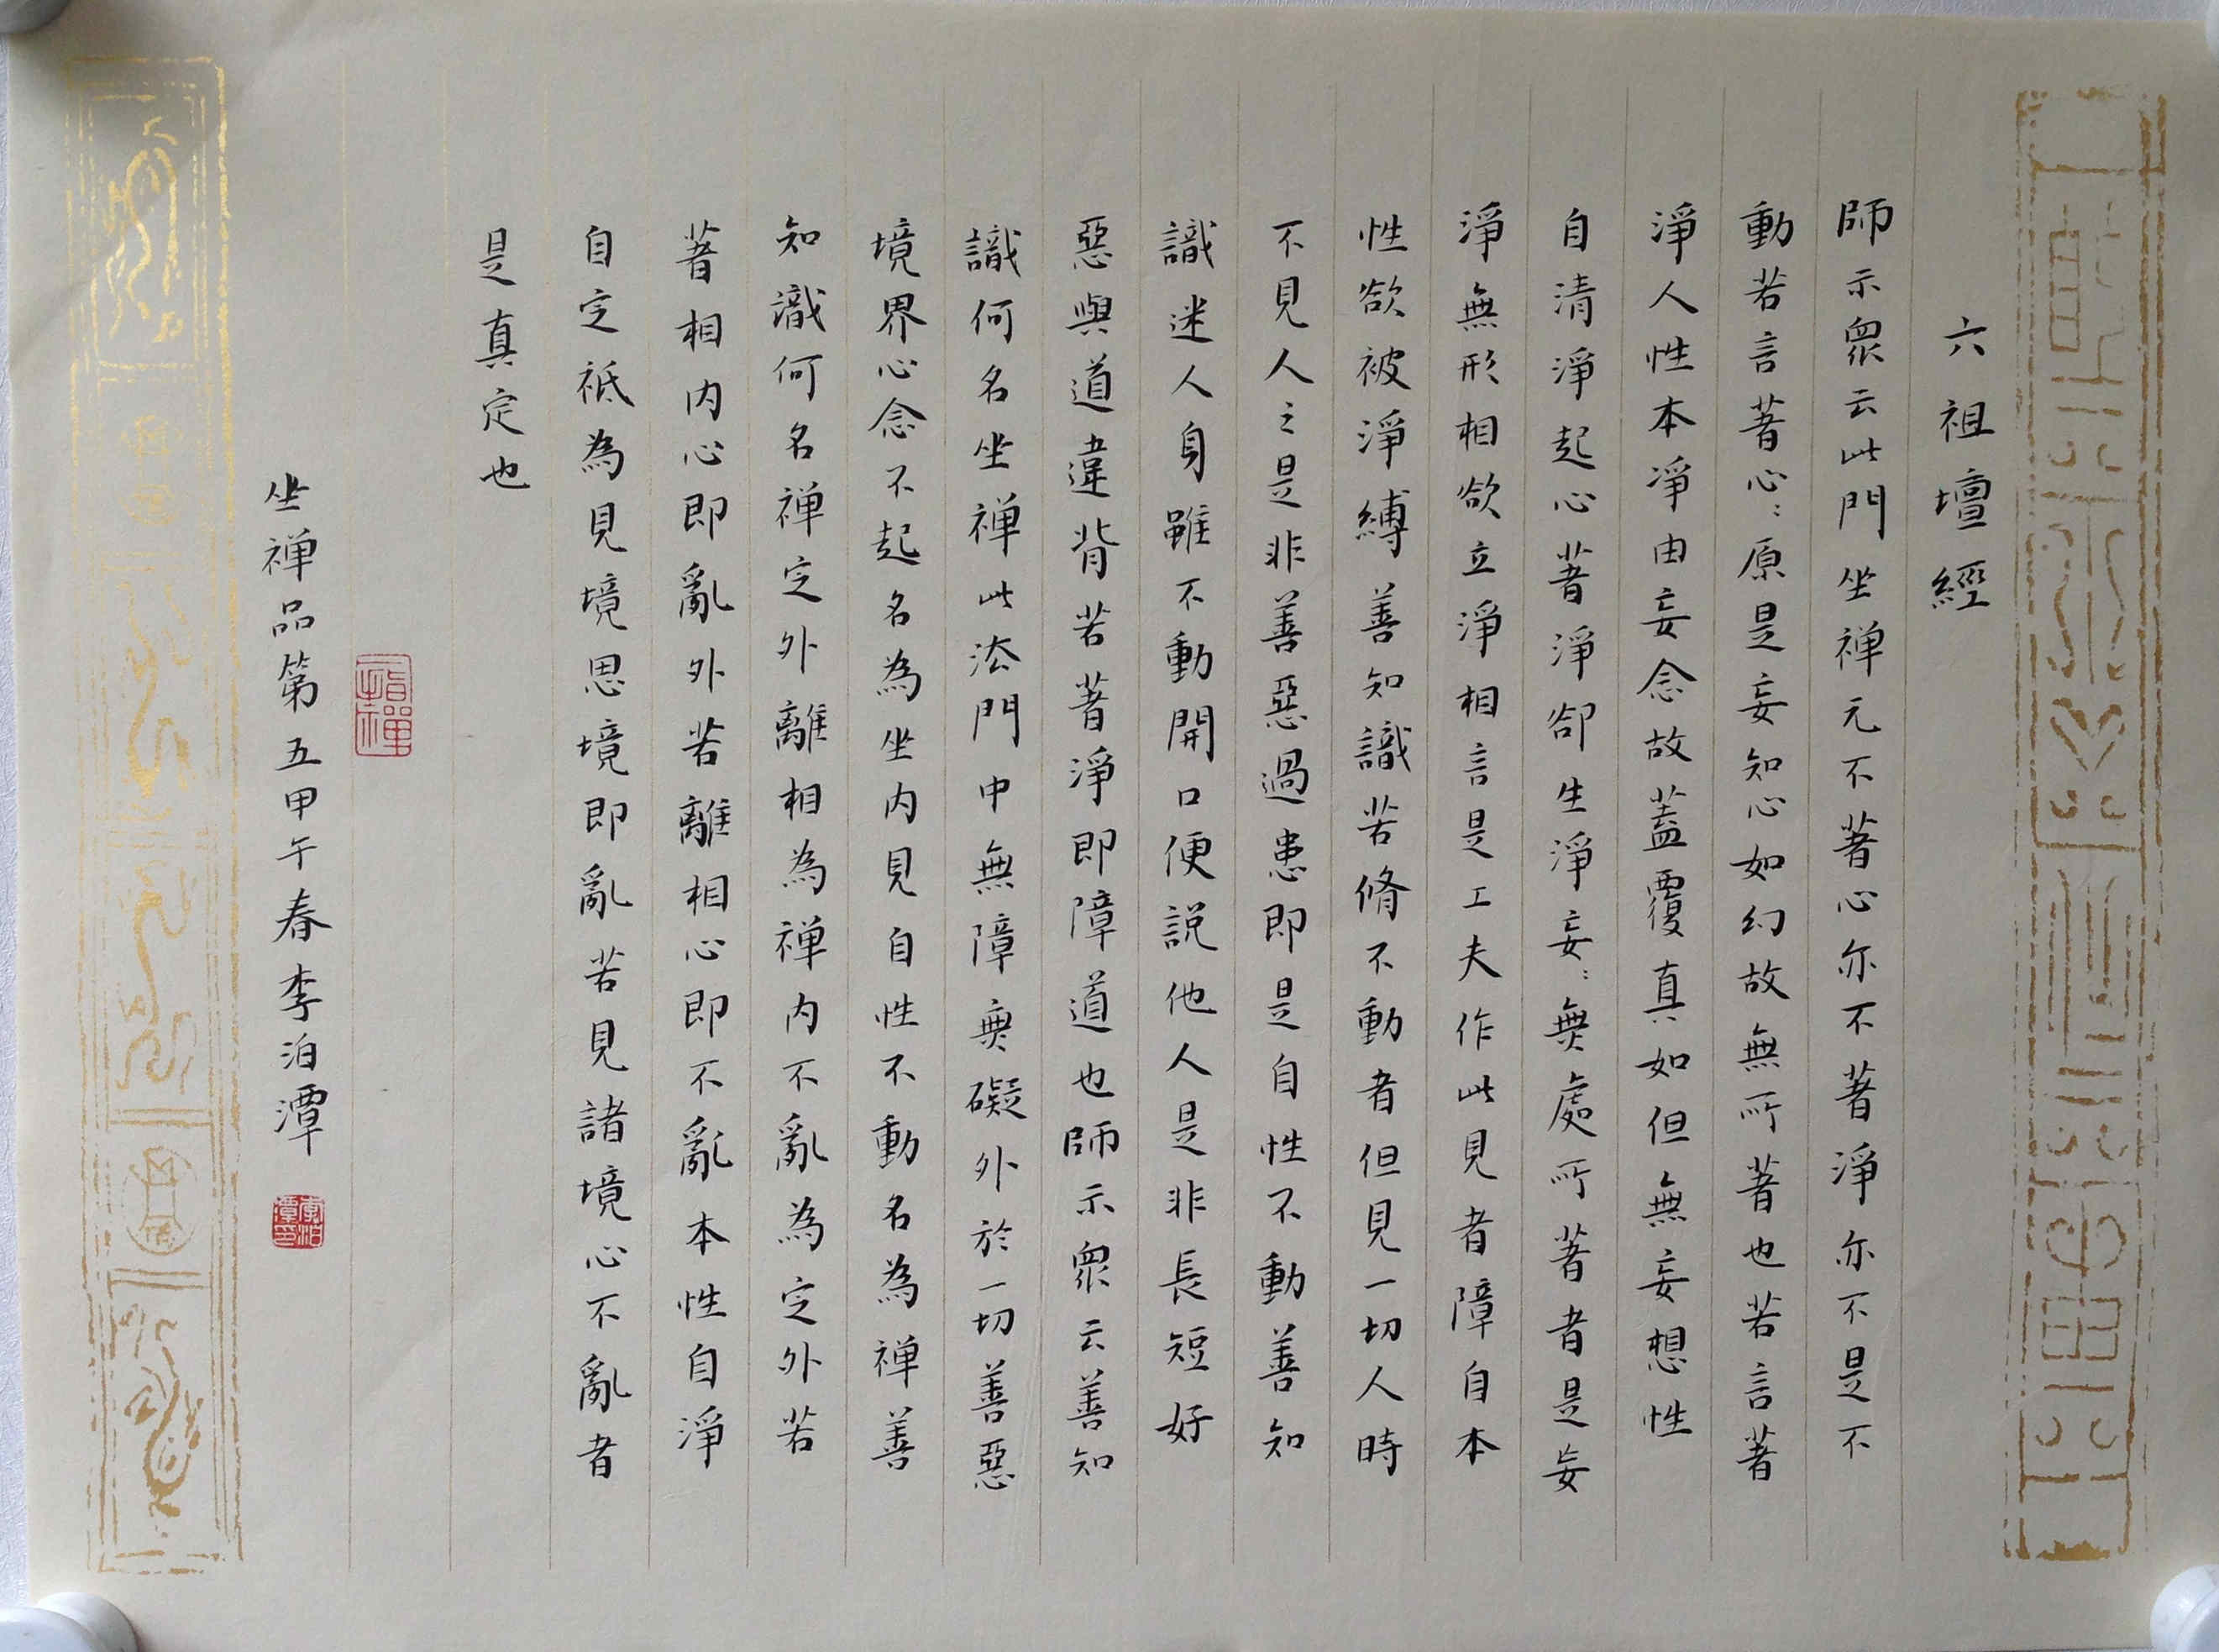 六祖壇經
師示眾云此門坐禅元不著心亦不著淨亦不是不
動若言著心〻原是妄知心如幻故無所著也若言著
淨人性本淨由妄念故蓋覆真如但無妄想性
自清淨起心著淨卻生淨妄〻無處所著者是妄
淨無形相欲立淨相言是工夫作此見者障自本
性欲被淨縛善知識若脩不動者但見一切人時
不見人之是非善惡過患即是自性不動善知
識迷人身雖不動開口便説他人是非長短好
惡與道違背若著淨即障道也師示眾云善知
識何名坐禅此法門中無障無礙外於一切善惡
境界心念不起名為坐内見自性不動名為禅善
知識何名禅定外離相為禅内不亂為定外若
著相内心即亂外若離相心即不亂本性自淨
自定祗為見境思境即亂若見諸境心不亂者
是真定也
坐禅品第五甲午春李泊潭
李泊潭印